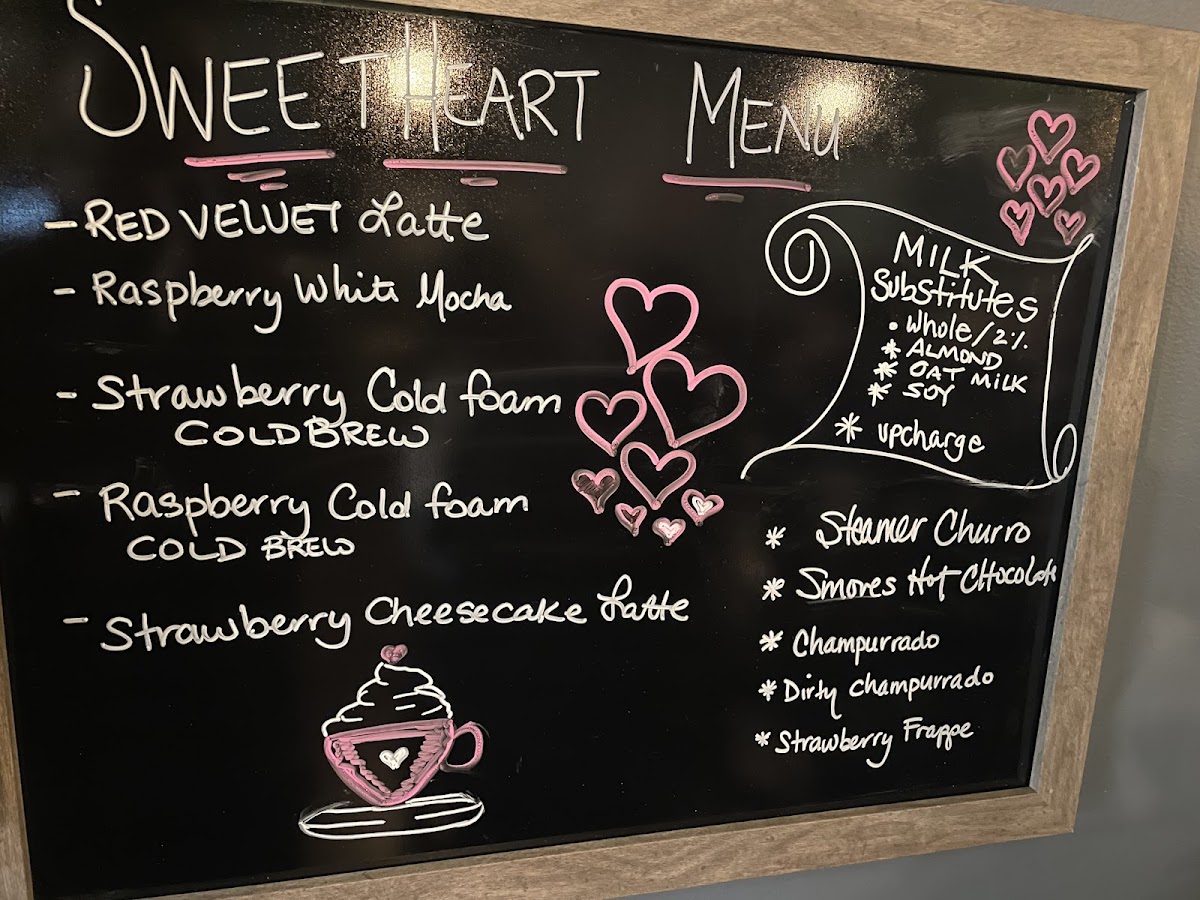 SWEETHEART MENU
- RED VELVET Latte
- Raspberry White Mocha
- Strawberry Cold foam
COLD BREW
- Raspberry Cold foam
COLD BREW
- Strawberry Cheesecake Latte
MILK
Substitutes
• Whole/2%
* ALMOND
* OAT MILK
* SOY
* upcharge
* Steamer Churro
* Smores Hot CHocolate
* Champurrado
* Dirty champurrado
* Strawberry Frappe